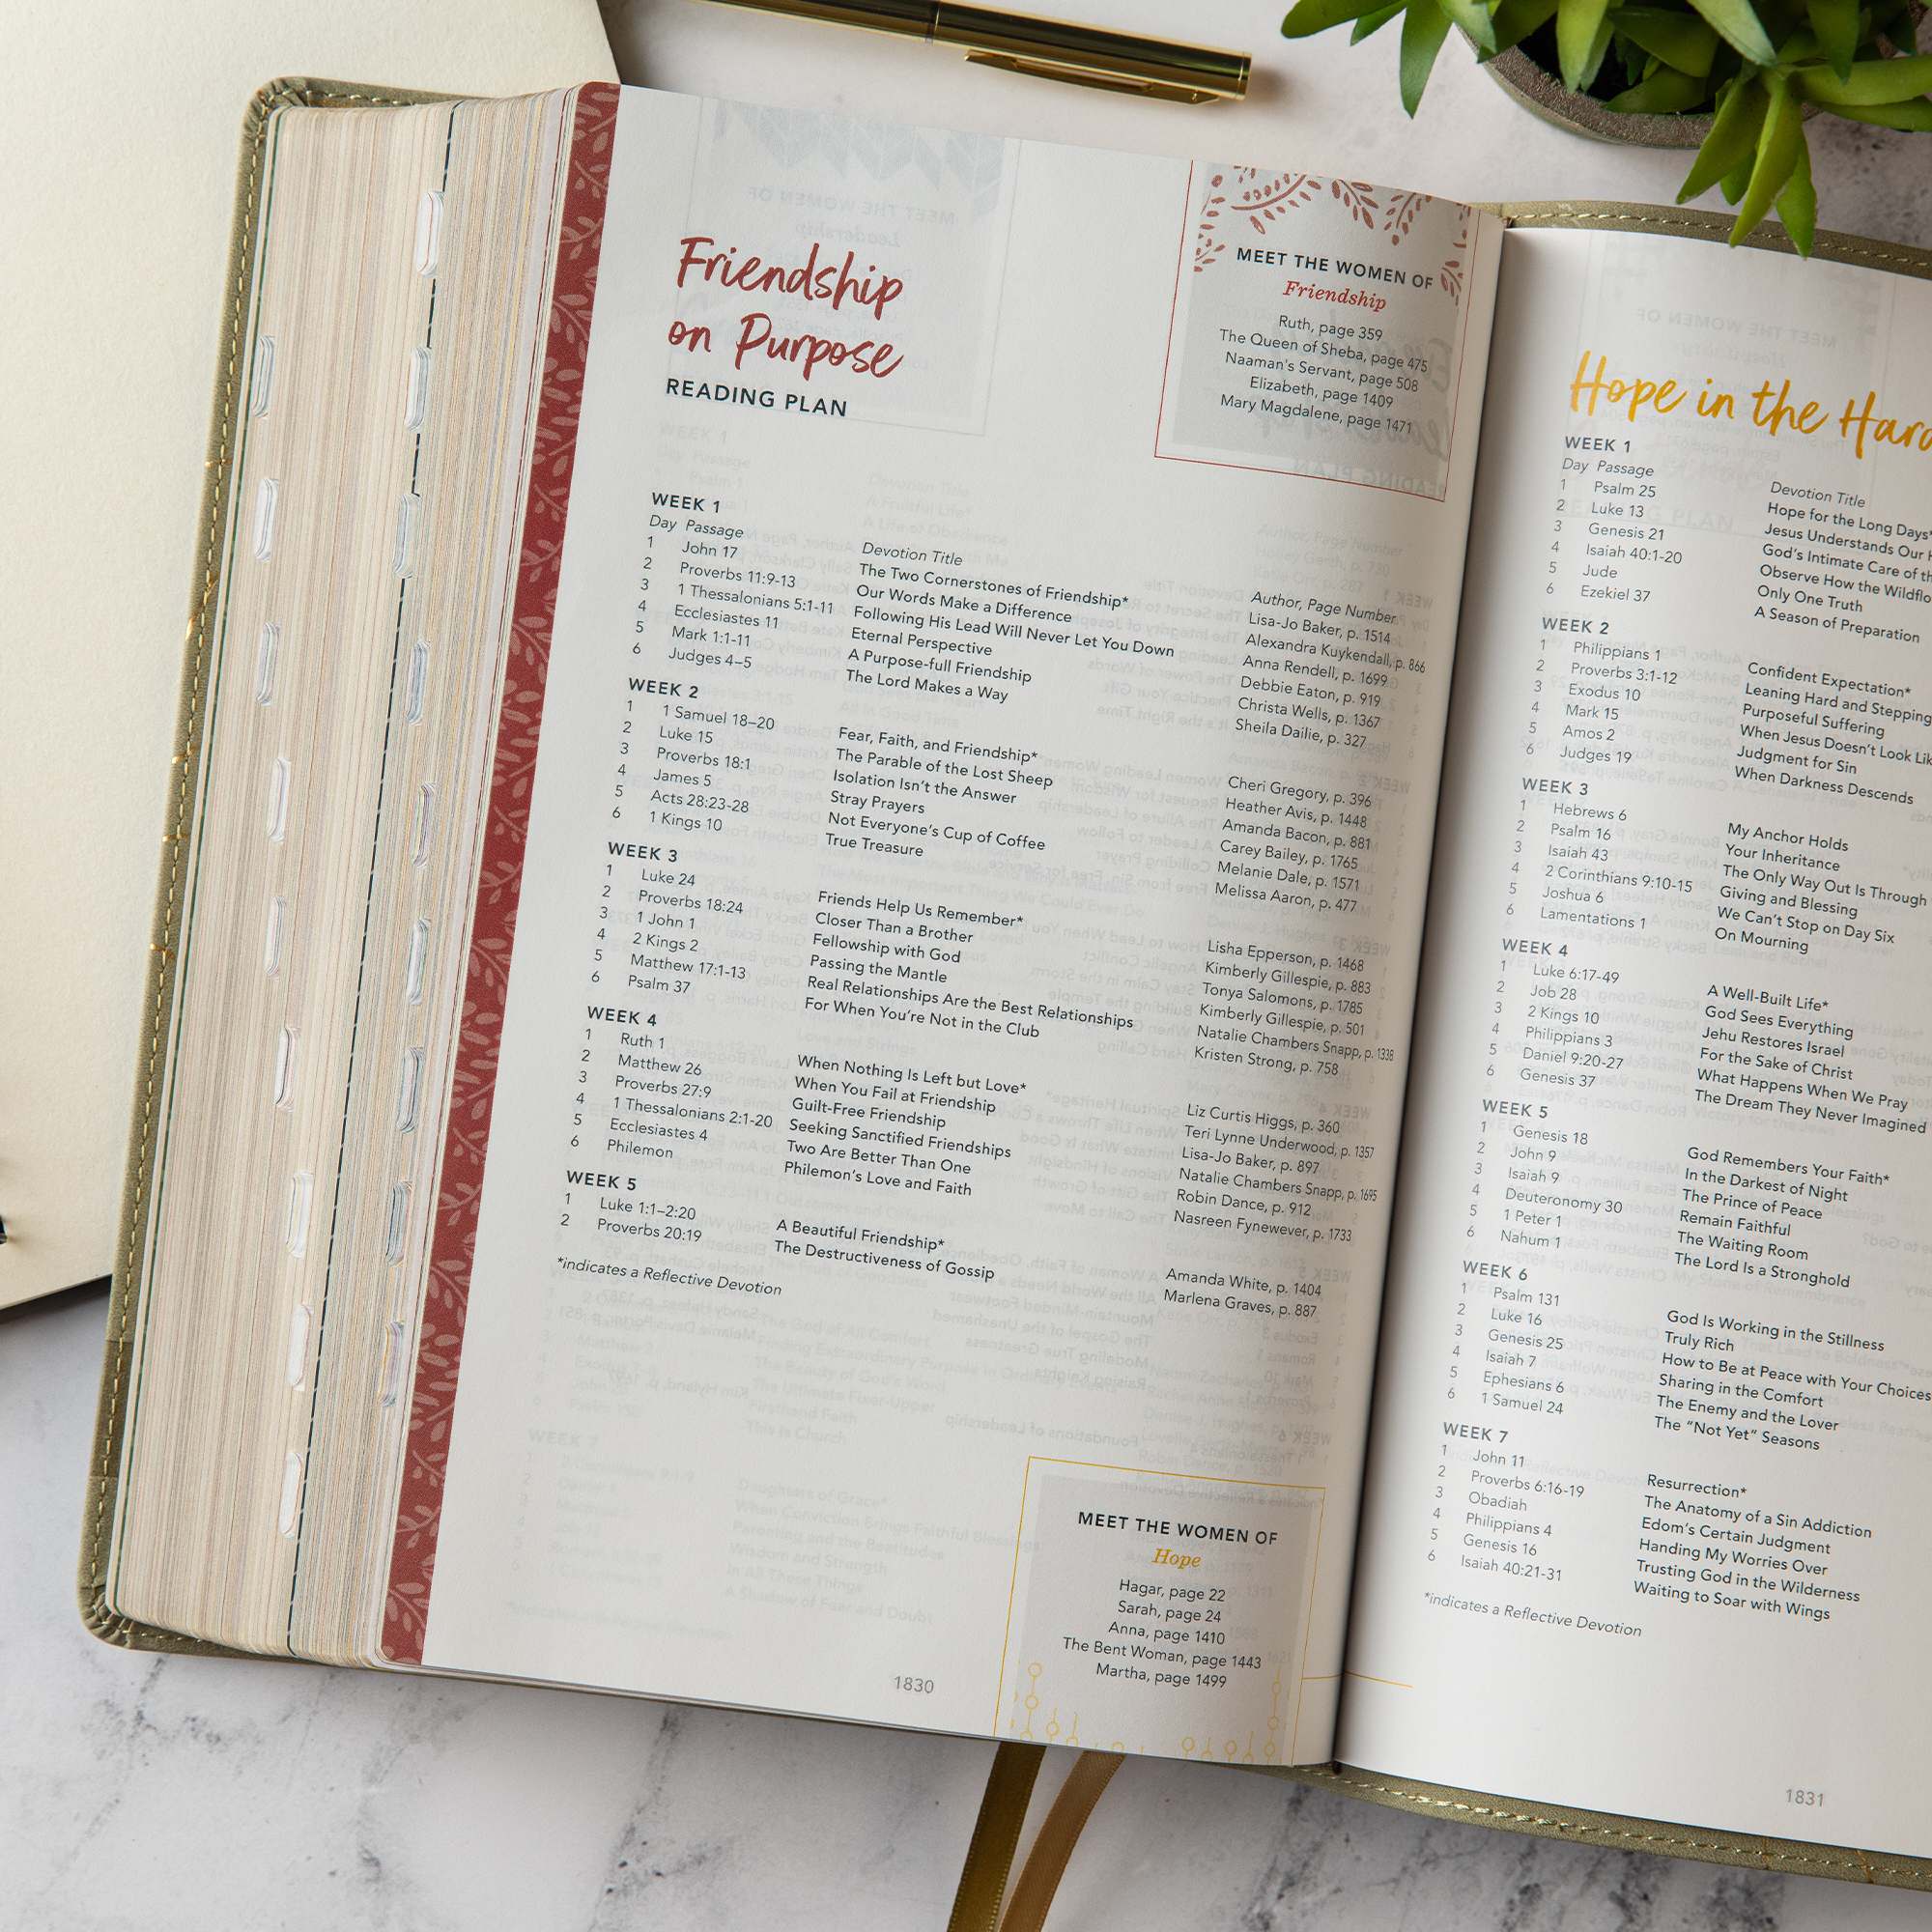 Friendship
on Purpose
READING PLAN
MEET THE WOMEN OF
Friendship
Ruth, page 359
The Queen of Sheba, page 475
Naaman's Servant, page 508
Elizabeth, page 1409
Mary Magdalene, page 1471
WEEK 1
Day Passage Devotion Title Author, Page Number
1 John 17 The Two Cornerstones of Friendship* Lisa-Jo Baker, p. 1514
2 Proverbs 11:9-13 Our Words Make a Difference Alexandra Kuykendall, p. 866
3 1 Thessalonians 5:1-11 Following His Lead Will Never Let You Down Anna Rendell, p. 1699
4 Ecclesiastes 11 Eternal Perspective Debbie Eaton, p. 919
5 Mark 1:1-11 A Purpose-full Friendship Christa Wells, p. 1367
6 Judges 4–5 The Lord Makes a Way Sheila Dailie, p. 327
WEEK 2
1 1 Samuel 18–20 Fear, Faith, and Friendship* Cheri Gregory, p. 396
2 Luke 15 The Parable of the Lost Sheep Heather Avis, p. 1448
3 Proverbs 18:1 Isolation Isn't the Answer Amanda Bacon, p. 881
4 James 5 Stray Prayers Carey Bailey, p. 1765
5 Acts 28:23-28 Not Everyone's Cup of Coffee Melanie Dale, p. 1571
6 1 Kings 10 True Treasure Melissa Aaron, p. 477
WEEK 3
1 Luke 24 Friends Help Us Remember* Lisha Epperson, p. 1468
2 Proverbs 18:24 Closer Than a Brother Kimberly Gillespie, p. 883
3 1 John 1 Fellowship with God Tonya Salomons, p. 1785
4 2 Kings 2 Passing the Mantle Kimberly Gillespie, p. 501
5 Matthew 17:1-13 Real Relationships Are the Best Relationships Natalie Chambers Snapp, p. 1338
6 Psalm 37 For When You're Not in the Club Kristen Strong, p. 758
WEEK 4
1 Ruth 1 When Nothing Is Left but Love* Liz Curtis Higgs, p. 360
2 Matthew 26 When You Fail at Friendship Teri Lynne Underwood, p. 1357
3 Proverbs 27:9 Guilt-Free Friendship Lisa-Jo Baker, p. 897
4 1 Thessalonians 2:1-20 Seeking Sanctified Friendships Natalie Chambers Snapp, p. 1695
5 Ecclesiastes 4 Two Are Better Than One Robin Dance, p. 912
6 Philemon Philemon's Love and Faith Nasreen Fynewever, p. 1733
WEEK 5
1 Luke 1:1–2:20 A Beautiful Friendship* Amanda White, p. 1404
2 Proverbs 20:19 The Destructiveness of Gossip Marlena Graves, p. 887
*indicates a Reflective Devotion
MEET THE WOMEN OF
Hope
Hagar, page 22
Sarah, page 24
Anna, page 1410
The Bent Woman, page 1443
Martha, page 1499
1830
Hope in the
WEEK 1
Day Passage Devotion Title
1 Psalm 25 Hope for the Long Days*
2 Luke 13 Jesus Understands Our
3 Genesis 21 God's Intimate Care of
4 Isaiah 40:1-20 Observe How the
5 Jude Only One Truth
6 Ezekiel 37 A Season of Preparation
WEEK 2
1 Philippians 1 Confident Expectation*
2 Proverbs 3:1-12 Leaning Hard and Stepping
3 Exodus 10 Purposeful Suffering
4 Mark 15 When Jesus Doesn't Look
5 Amos 2 Judgment for Sin
6 Judges 19 When Darkness Descends
WEEK 3
1 Hebrews 6 My Anchor Holds
2 Psalm 16 Your Inheritance
3 Isaiah 43 The Only Way Out Is Through
4 2 Corinthians 9:10-15 Giving and Blessing
5 Joshua 6 We Can't Stop on Day Six
6 Lamentations 1 On Mourning
WEEK 4
1 Luke 6:17-49 A Well-Built Life*
2 Job 28 God Sees Everything
3 2 Kings 10 Jehu Restores Israel
4 Philippians 3 For the Sake of Christ
5 Daniel 9:20-27 What Happens When We Pray
6 Genesis 37 The Dream They Never Imagined
WEEK 5
1 Genesis 18 God Remembers Your Faith*
2 John 9 In the Darkest of Night
3 Isaiah 9 The Prince of Peace
4 Deuteronomy 30 Remain Faithful
5 1 Peter 1 The Waiting Room
6 Nahum 1 The Lord Is a Stronghold
WEEK 6
1 Psalm 131 God Is Working in the Stillness
2 Luke 16 Truly Rich
3 Genesis 25 How to Be at Peace with Your Choices
4 Isaiah 7 Sharing in the Comfort
5 Ephesians 6 The Enemy and the Lover
6 1 Samuel 24 The "Not Yet" Seasons
WEEK 7
1 John 11 Resurrection*
2 Proverbs 6:16-19 The Anatomy of a Sin Addiction
3 Obadiah Edom's Certain Judgment
4 Philippians 4 Handing My Worries Over
5 Genesis 16 Trusting God in the Wilderness
6 Isaiah 40:21-31 Waiting to Soar with Wings
*indicates a Reflective Devotion
1831